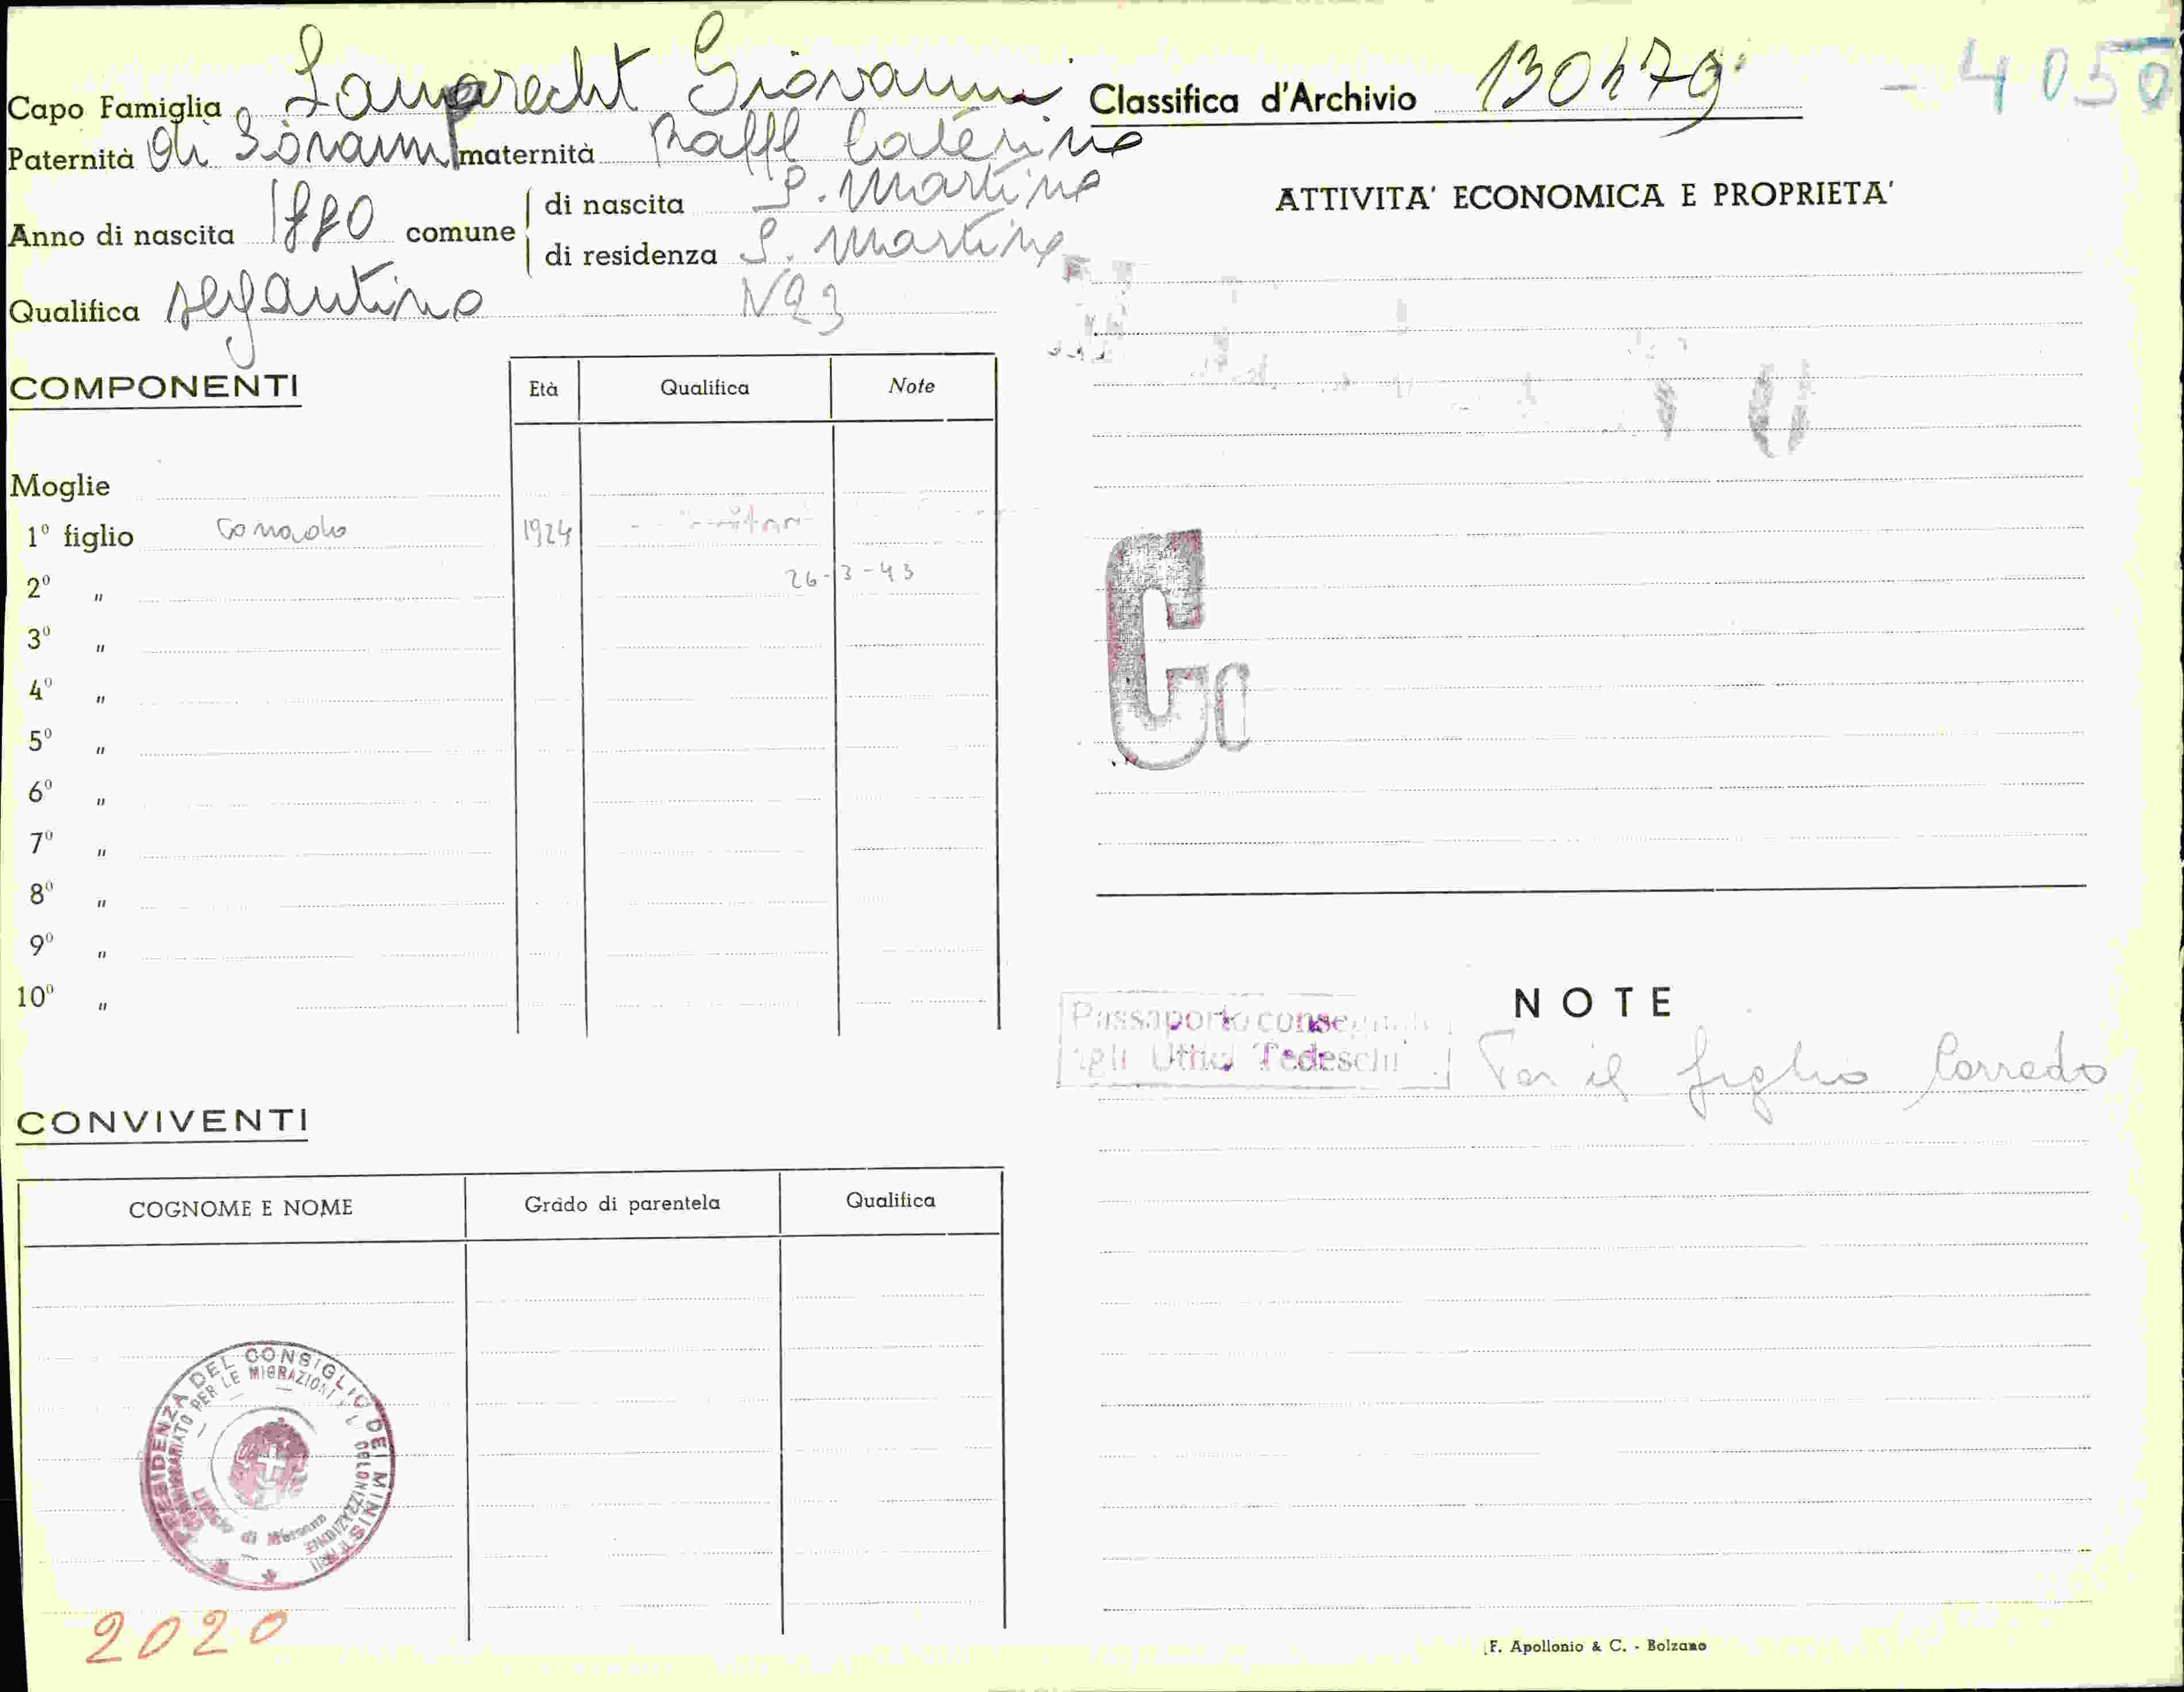 Capo Famiglia Lamprecht Giovanni
Paternità di Giovanni maternità Raffl Caterina
Anno di nascita 1880 comune di nascita S. Martino
di residenza S. Martino
Qualifica segantino N23
COMPONENTI Età Qualifica Note
Moglie
1º figlio Corrado 1924
2º " 26-3-43
3º "
4º "
5º "
6º "
7º "
8º "
9º "
10º "
CONVIVENTI
COGNOME E NOME Grado di parentela Qualifica
PRESIDENZA DEL CONSIGLIO DEI MINISTRI
COMMISSARIATO PER LE MIGRAZIONI E L COLONIZZAZIONE
Ufficio di Merano
2020
Classifica d'Archivio 130479 - 4050
ATTIVITA' ECONOMICA E PROPRIETA'
Co
NOTE
Passaporto consegnato
agli Uffici Tedeschi Per il figlio Corrado
F. Apollonio & C. - Bolzano